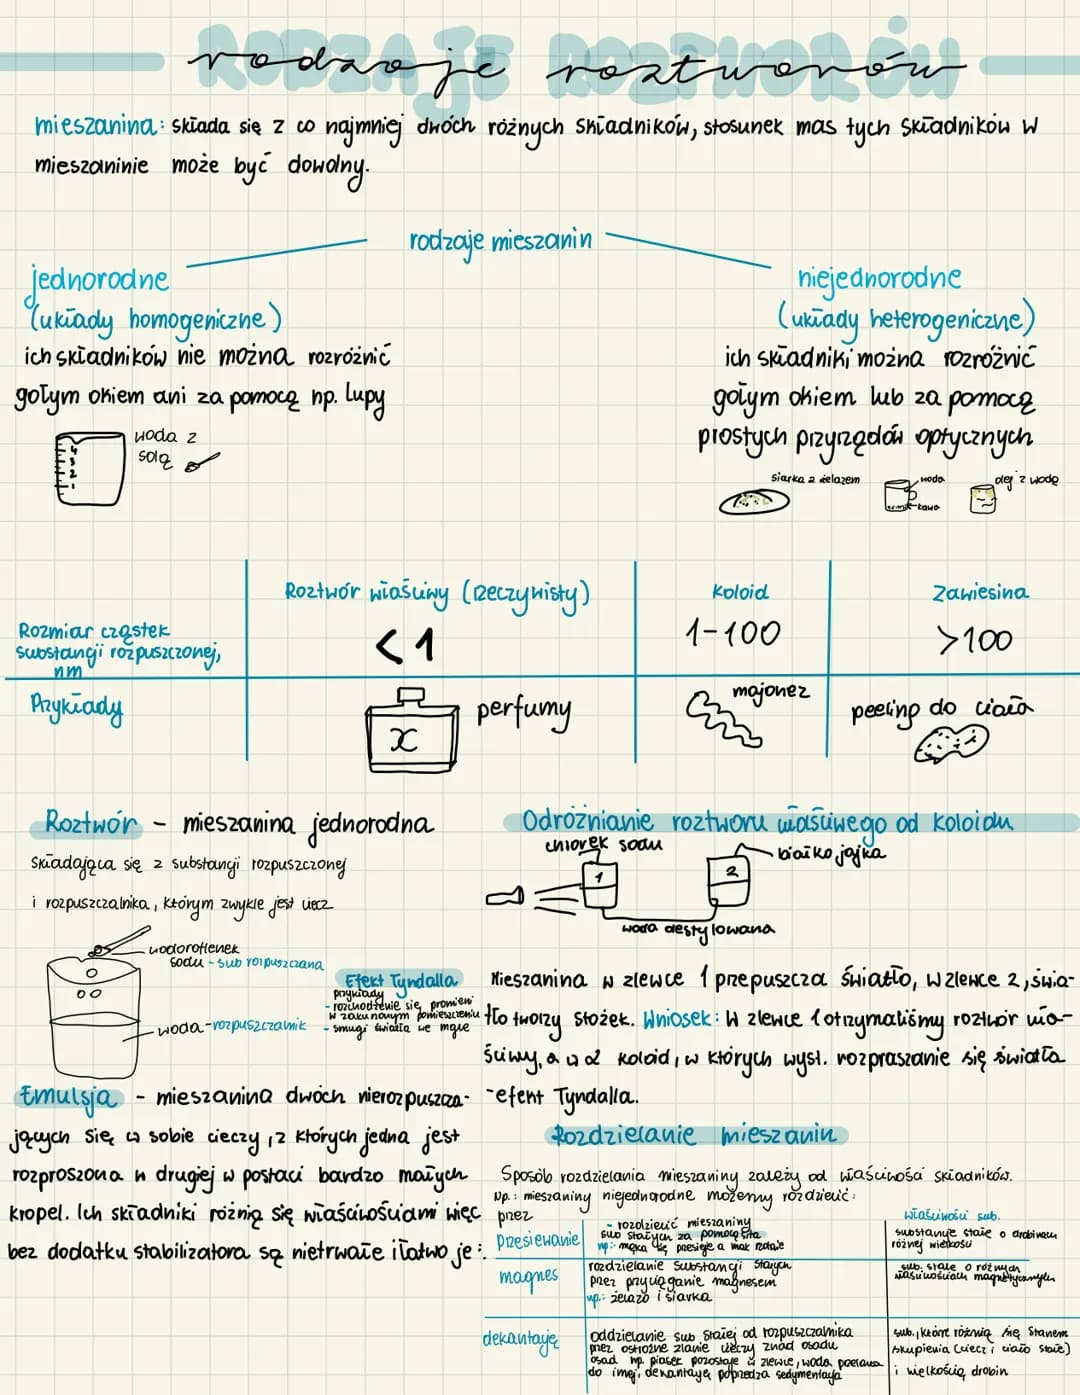 RODZAJE ROZTWORÓW
rodzaje roztworów
mieszanina: składa się z co najmniej dwóch różnych składników, stosunek mas tych składników w
mieszaninie może być dowolny.
rodzaje mieszanin
jednorodne
(układy homogeniczne)
ich składników nie można rozróżnić
gołym okiem ani za pomocą np. lupy
woda z
solą
niejednorodne
(układy heterogeniczne)
ich składniki można rozróżnić
gołym okiem lub za pomocą
prostych przyrządów optycznych
siarka z żelazem
woda
kawa
olej z wodą
Roztwór właściwy (rzeczywisty)
Koloid
Zawiesina
Rozmiar cząstek
substancji rozpuszczonej,
nm
<1
1-100
>100
Przykłady
x
perfumy
majonez
peeling do ciała
Roztwór - mieszanina jednorodna
składająca się z substancji rozpuszczonej
i rozpuszczalnika, którym zwykle jest ciecz
wodorotlenek
sodu - sub rozpuszczana
woda-rozpuszczalnik
Efekt Tyndalla
przykłady
- rozchodzenie się promieni
w zakurzonym pomieszczeniu
- smugi światła we mgle
Emulsja - mieszanina dwóch nierozpuszcza-
jących się w sobie cieczy, z których jedna jest
rozproszona w drugiej w postaci bardzo małych
kropel. Ich składniki różnią się właściwościami więc
bez dodatku stabilizatora są nietrwałe i łatwo je :.
Odróżnianie roztworu właściwego od koloidu
chlorek sodu
białko jajka
1
2
woda destylowana
Mieszanina w zlewce 1 przepuszcza światło, w zlewce 2, świa-
tło tworzy stożek. Wniosek: W zlewce 1 otrzymaliśmy roztwór wła-
ściwy, a w 2 koloid, w których wyst. rozpraszanie się światła
-efekt Tyndalla.
Rozdzielanie mieszanin
Sposób rozdzielania mieszaniny zależy od właściwości składników.
Np.: mieszaniny niejednorodne możemy rozdzielić:
przez
właściwości sub.
przesiewanie
- rozdzielić mieszaniny
sub stałych za pomocą sita
np:- mąka się przesieje a mak zostaje
substancje stałe o drobinach
różnej wielkości
magnes
rozdzielanie substancji stałych
przez przyciąganie magnesem
np.: żelazo i siarka
sub. stałe o różnych
właściwościach magnetycznych
dekantację
oddzielanie sub stałej od rozpuszczalnika
przez ostrożne zlanie cieczy znad osadu
osad np. piasek pozostaje w zlewce, woda przelana
do innej. dekantację poprzedza sedymentacja
sub., które różnią się stanem
skupienia (ciecz i ciało stałe)
i wielkością drobin